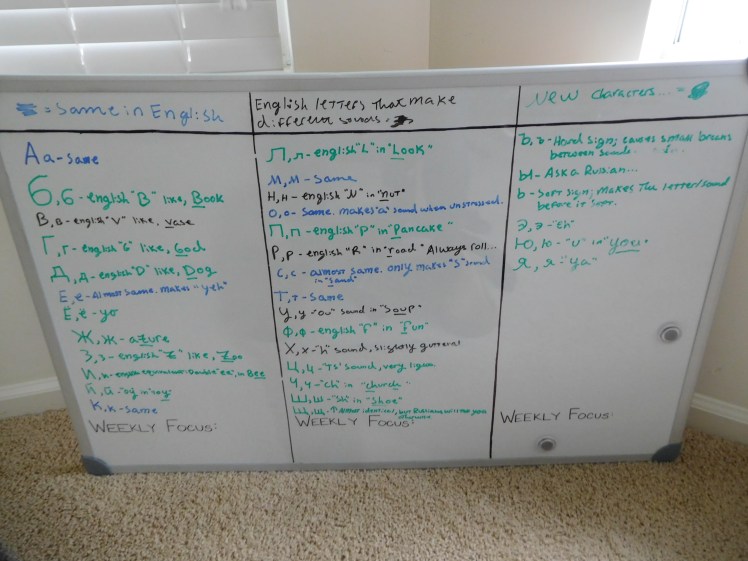 = Same in English
English letters that make
different sounds.
New characters... =
Аа - same
Б, б - english "B" like, Book
В, в - english "V" like, vase
Г, г - english "G" like, God
Д, д - english "D" like, Dog
Е, е - Almost same. makes "yeh"
Ё, ё - yo
Ж, ж - azure
З, з - english "Z" like, Zoo
И, и - english equivalent Double "ee", in Bee
Й, й - "oy" in
К, к - same
WEEKLY FOCUS:
Л, л - english "L" in "Look"
М, м - same
Н, н - english "N" in "nut"
О, о - same. makes "a" sound when unstressed.
П, п - english "P" in "Pancake"
Р, р - english "R" in "road" Always roll...
С, с - almost same. only makes "S" sound
in "Sand"
Т, т - same
У, у - "ou" sound in "Soup"
Ф, ф - english "F" in "Fun"
Х, х - "h" sound, slightly guttural
Ц, ц - "TS" sound, very
Ч, ч - "ch" in "church"
Ш, ш - "Sh" in "Shoe"
Щ, щ - identical, but Russians will
WEEKLY FOCUS:
Ъ, ъ - Hard sign; causes small breaks
between sounds
Ы - Ask a Russian...
Ь - Soft sign; makes the letter/sound
before it soft.
Э, э - "eh"
Ю, ю - "U" in "you"
Я, я - "ya"
WEEKLY FOCUS: